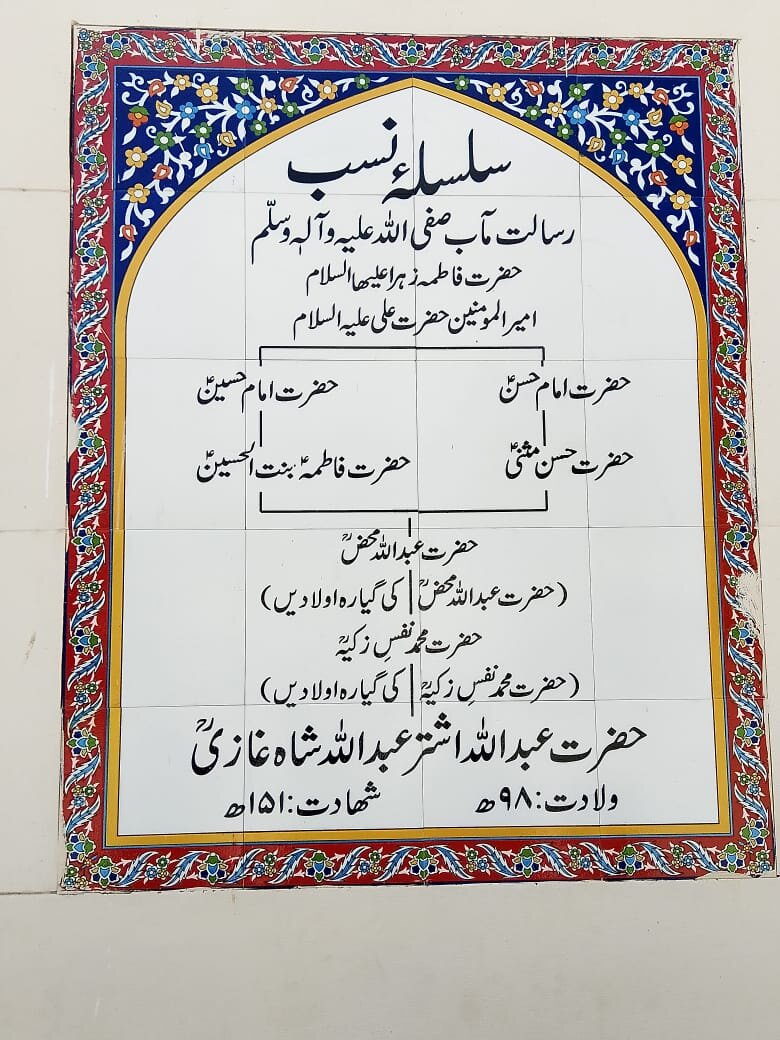 سلسلۂ نسب
رسالت مآب صفی اللہ علیہ وآلہٖ وسلّم
حضرت فاطمہ زہرا علیھا السلام
امیر المومنین حضرت علی علیہ السلام
حضرت امام حسنؑ حضرت امام حسینؑ
حضرت حسن مثنیٰؑ حضرت فاطمہؑ بنت الحسینؑ
حضرت عبداللہ محضؒ
(حضرت عبداللہ محضؒ کی گیارہ اولادیں)
حضرت محمد نفسِ زکیہؒ
(حضرت محمد نفسِ زکیہؒ کی گیارہ اولادیں)
حضرت عبداللہ اشتر عبداللہ شاہ غازیؒ
ولادت: ۹۸ھ شھادت: ۱۵۱ھ